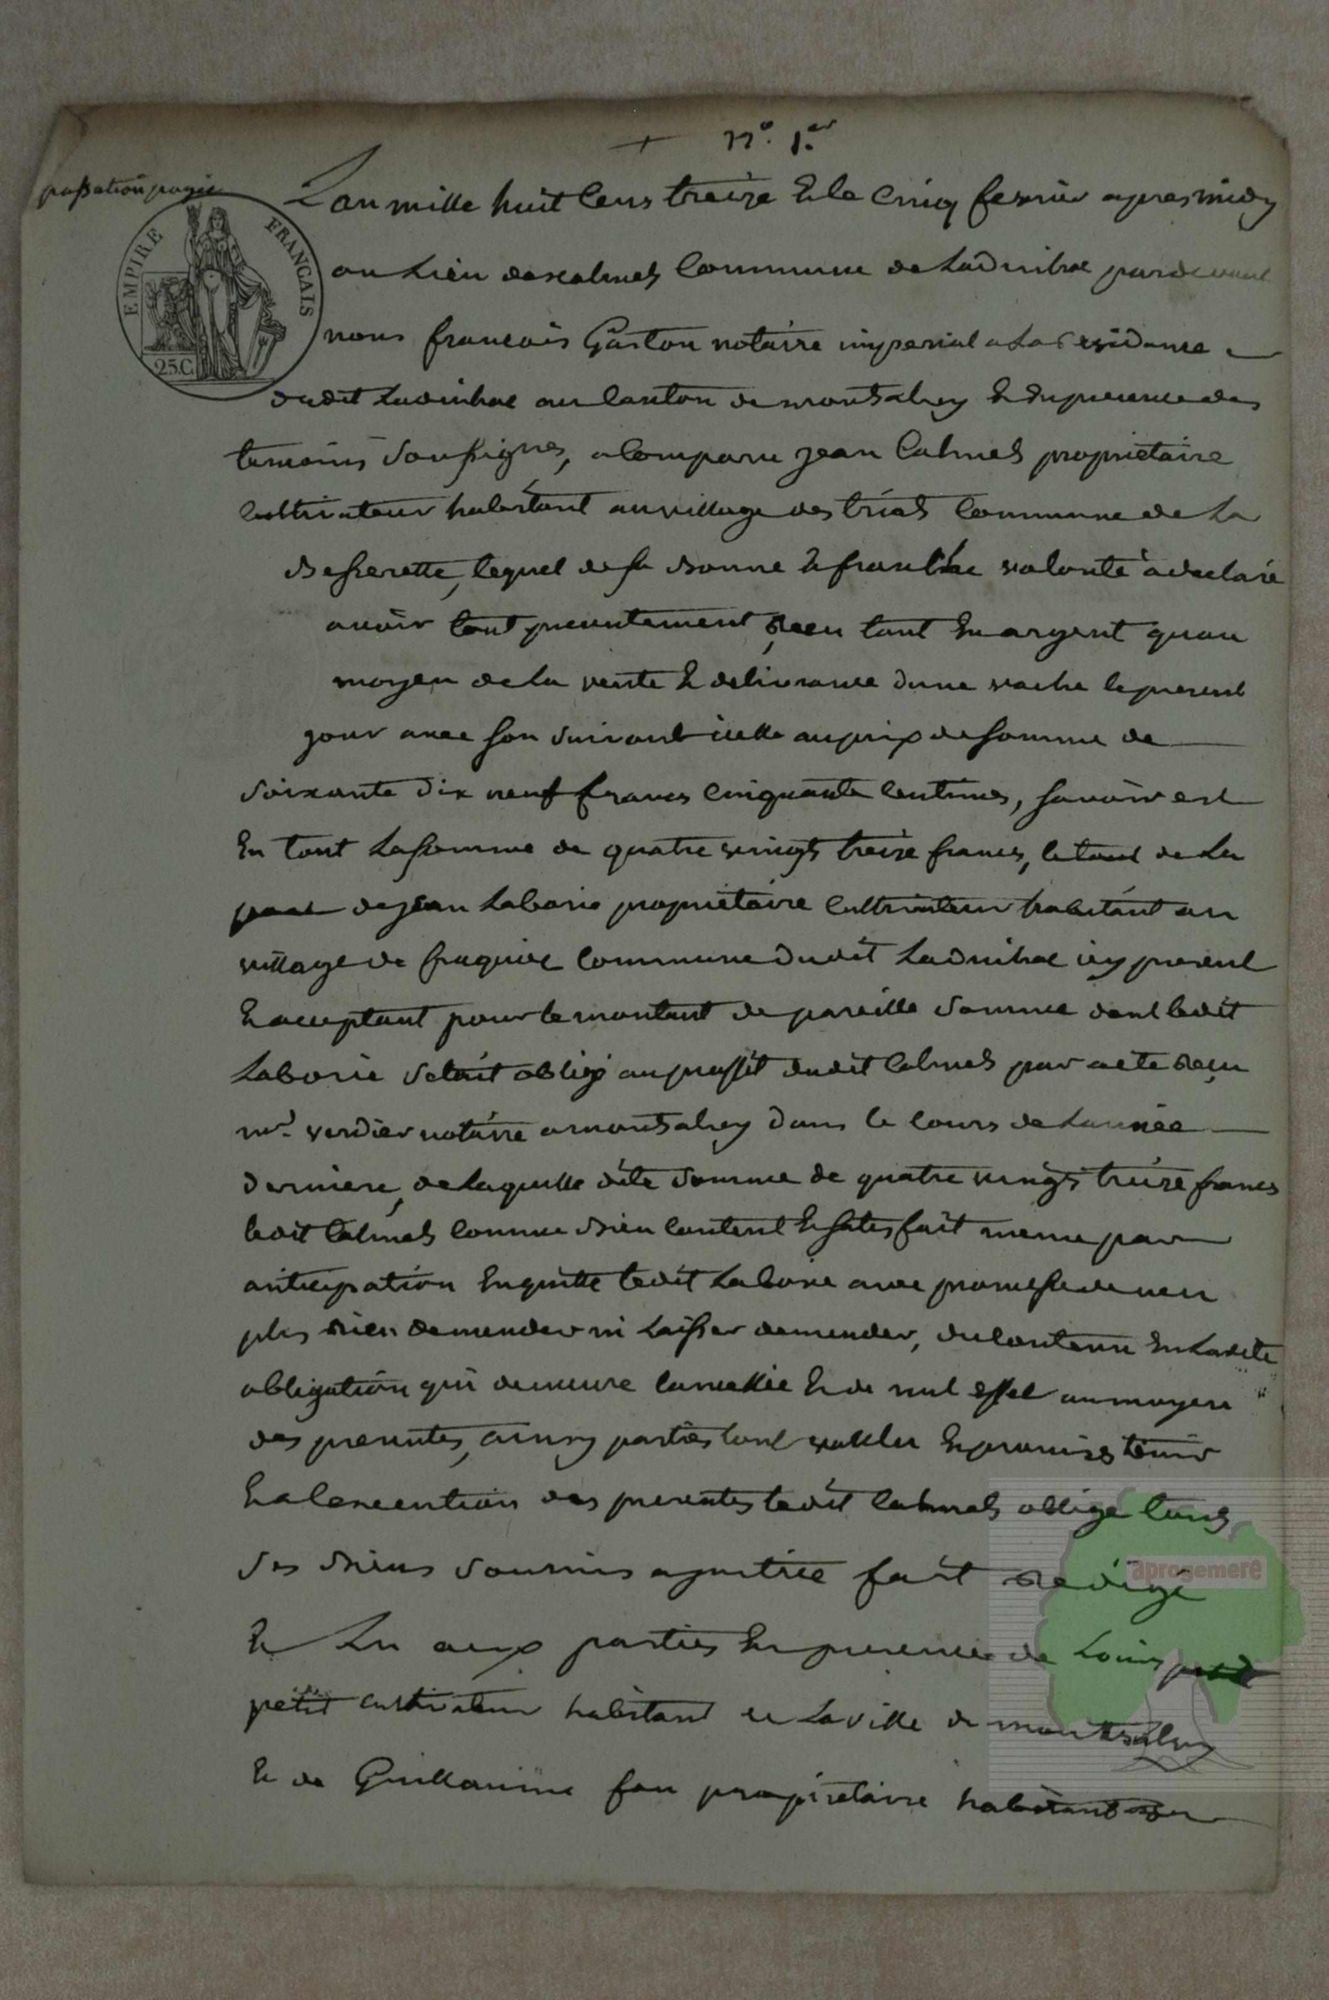 + n.° 1.er
passation
EMPIRE FRANÇAIS
25.C.
L'an mille huit cens treize & le cinq fevrier apres midy
au Lieu commune de Ladinhac pardevant
nous francois Gaston notaire imperial a La residance
dudit Ladinhac au canton de montsalvy & En presence des
temoins soussignes, a Comparu jean Calmels propriétaire
cultivateur habitant au village des trials Commune de La
Besserette, lequel de sa Bonne & franche volonté a declaré
avoir tout presentement, Reçu tant En argent quau
moyen de La vente & delivrance dune vache le present
jour avec son suivant icelle au prix de somme de
soixante dix neuf francs cinquante centimes, savoir est
En tout La somme de quatre vingts treize francs, le tout de La
part de jean Laborie propriétaire cultivateur habitant au
village de Commune dudit Ladinhac icy present
& acceptant pour le montant de pareille somme dont ledit
Laborie setoit obligé au proffit dudit Calmels par acte Reçu
mr. verdier notaire a montsalvy dans le cours de Lannée
derniere, de Laquelle dite somme de quatre vingts treize francs
ledit Calmels comme Bien content & satisfait meme par
anticipation En quitte ledit Laborie avec promesse de nen
plus Rien demander ni Laisser demander, du contenu En Ladite
obligation qui demeure cancellée & de nul effet au moyen
des presentes, ainsy parties lont voullu & promis tenir
& a lexecution des presentes ledit Calmels oblige tous
ses Biens soumis a justice fait Redigé
& Lu aux parties En presence de Louis
petit cultivateur habitant de La ville de montsalvy
& de Guillaume fau propriétaire habitant
aprogemere